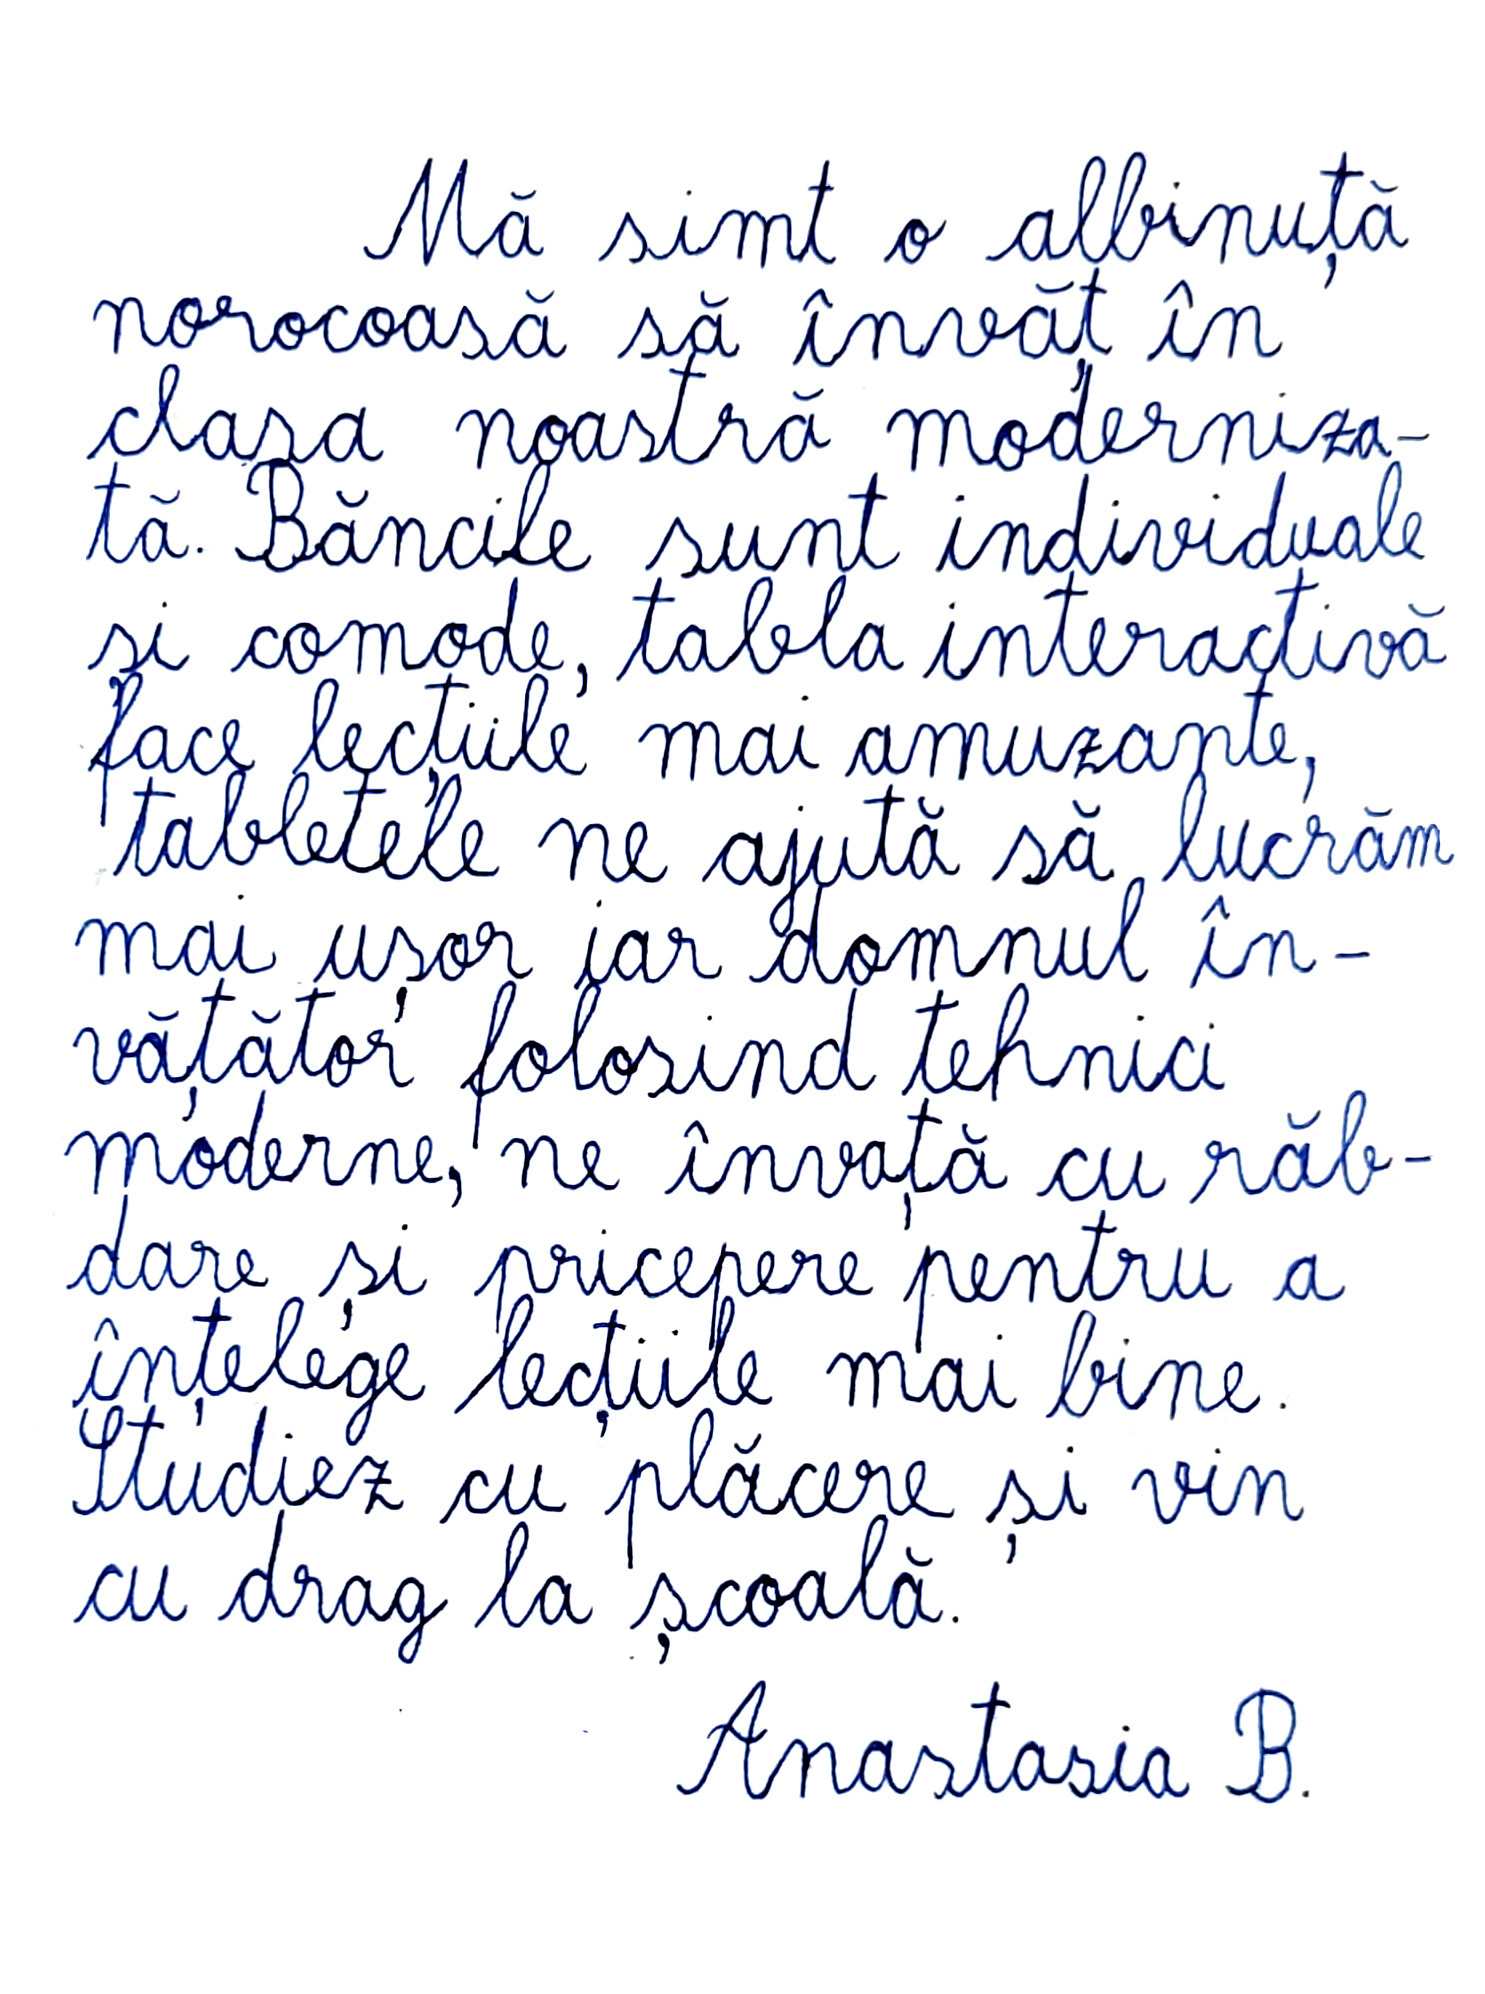 Mă simt o albinuță
norocoasă să învăț în
clasa noastră moderniza-
tă. Băncile sunt individuale
și comode, tabla interactivă
face lecțiile mai amuzante,
tabletele ne ajută să lucrăm
mai ușor iar domnul în-
vățător folosind tehnici
moderne, ne învață cu răb-
dare și pricepere pentru a
înțelege lecțiile mai bine.
Studiez cu plăcere și vin
cu drag la școală.
Anastasia B.